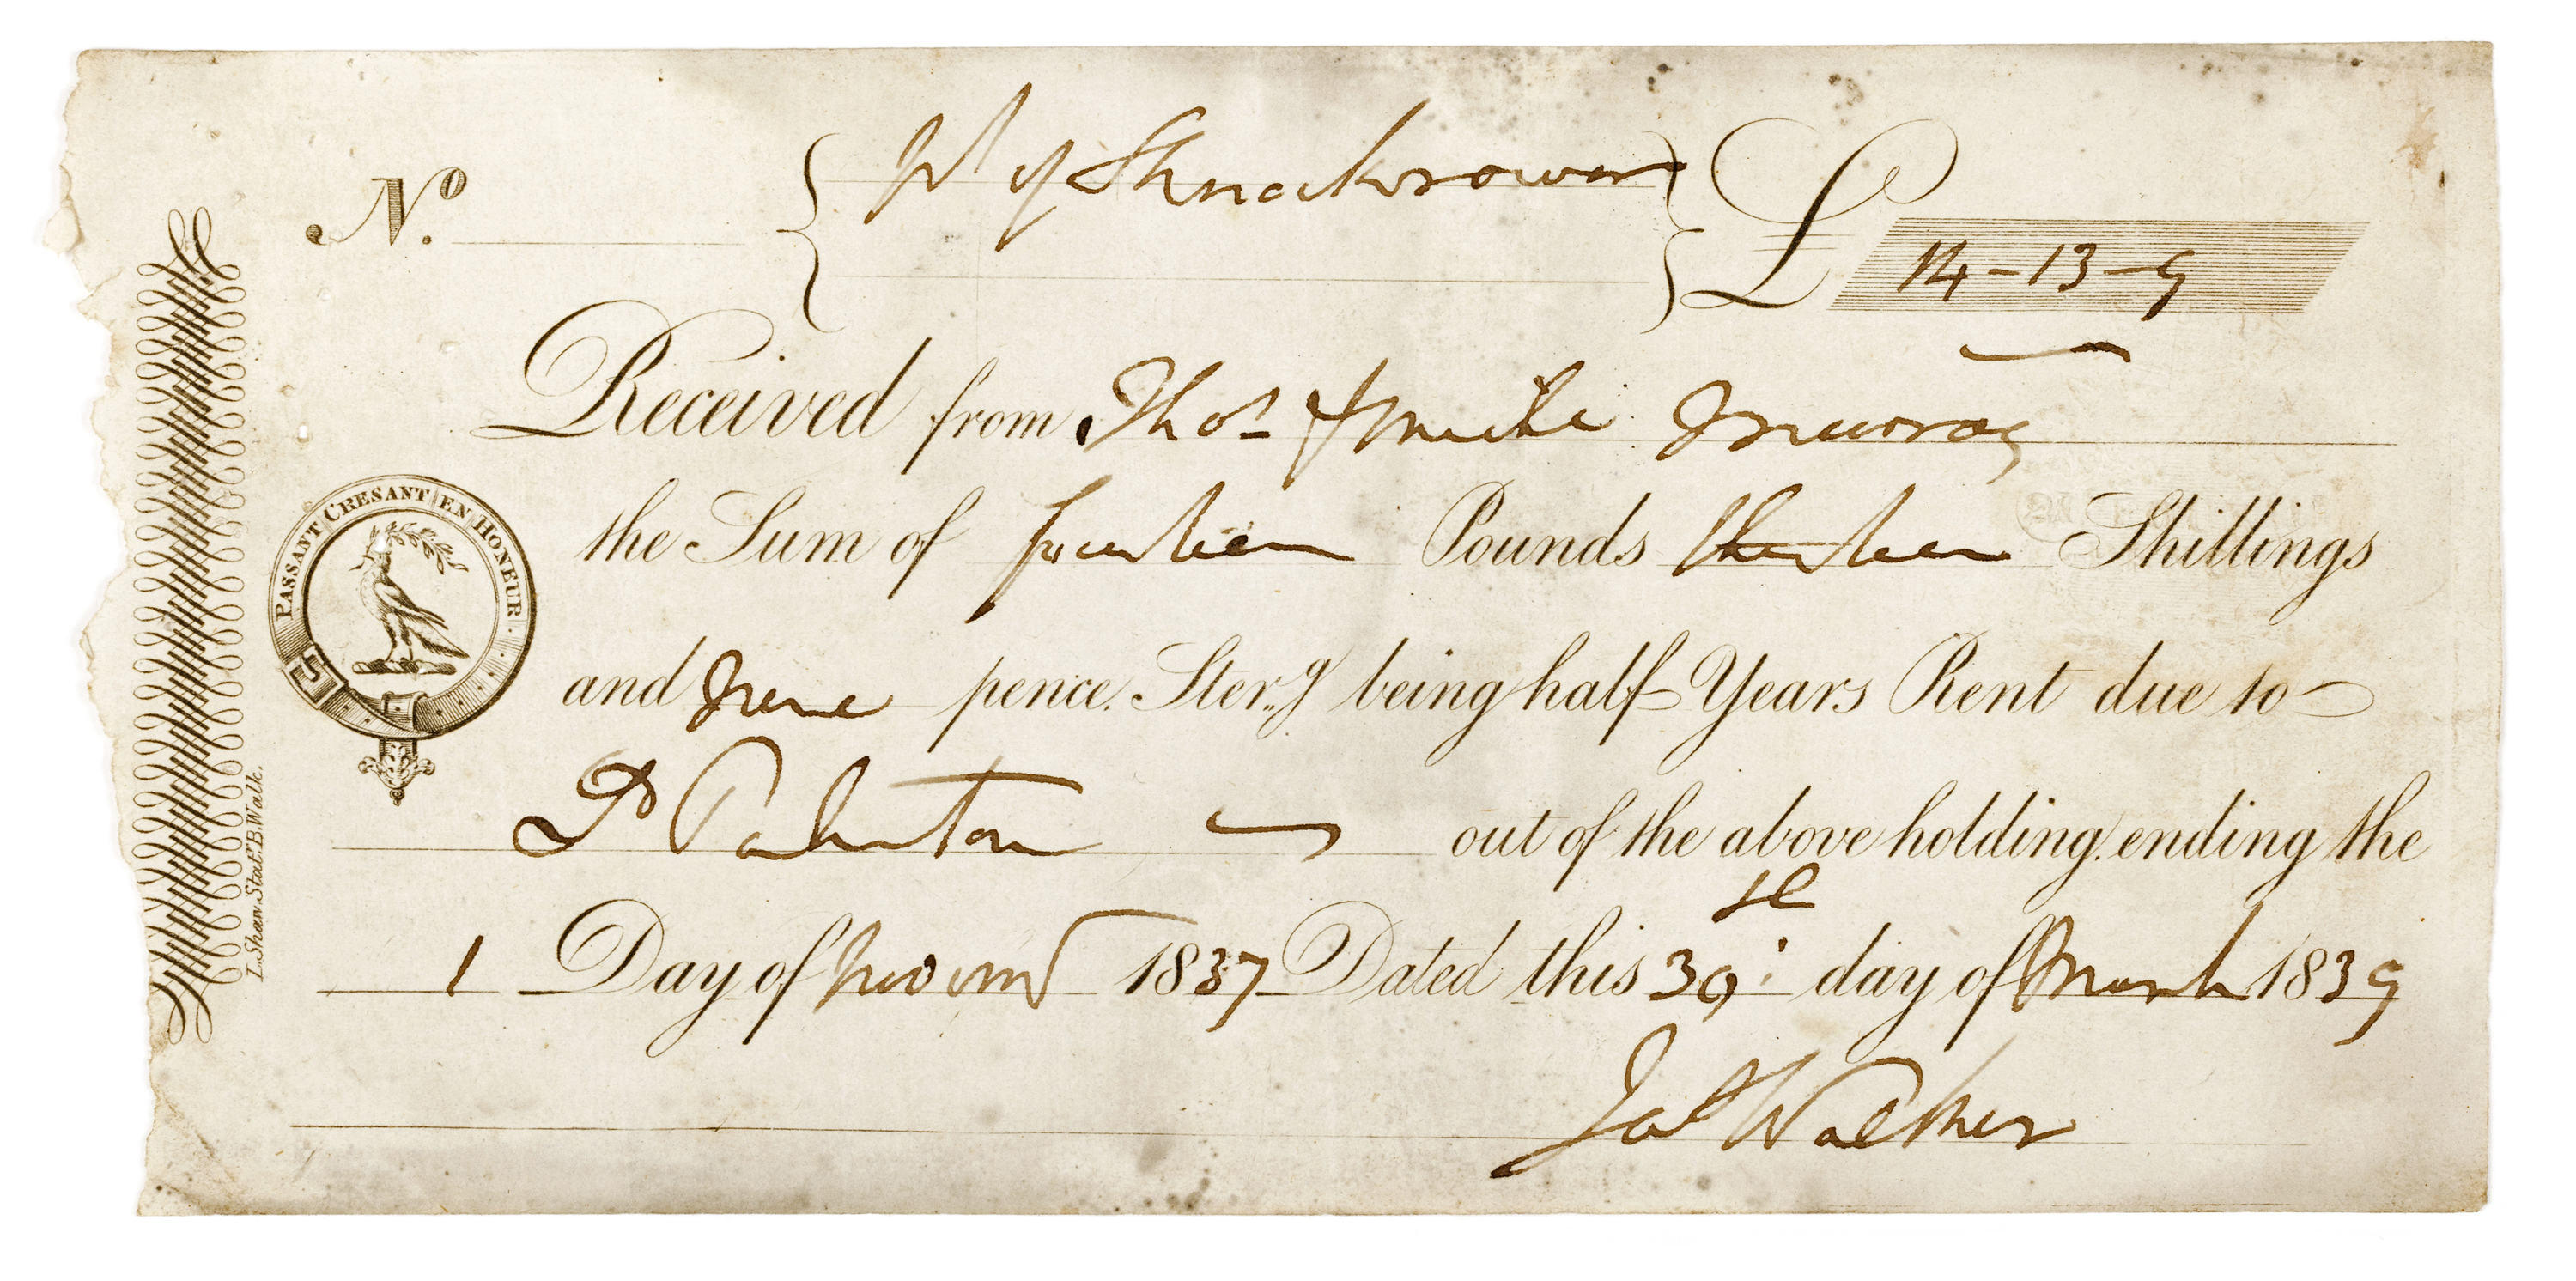 Nº { Pt of Shnackrowan } £ 14-13-9
Received from Thos & Mick Murray
the Sum of fourteen Pounds thirteen Shillings
and Nine pence Ster.g being half Years Rent due to
Dr out of the above holding ending the
1 Day of Novemr 1837 Dated this 30 day of March 1839
Jas Walker
PASSANT CRESANT EN HONEUR
L. Shaw. Statr. B. Walk.